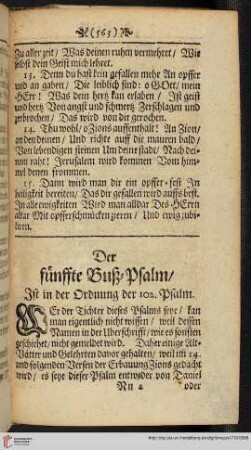 (563)
Zu aller zeit/ Was deinen ruhm vermehret/ Wie
selbst dein Geist mich lehret.
13. Denn du hast kein gefallen mehr An opffer
und an gaben/ Die leiblich sind: o GOtt/ mein
HErr! Was dein hertz kan erlaben/ Ist geist
und hertz Von angst und schmertz Zerschlagen und
gebrochen/ Das wird von dir gerochen.
14. Thu wohl/ o Zions auffenthalt! An Zion/
an den deinen/ Und richte auff die mauren bald/
Von lebendigen steinen Um deine stadt/ Nach dei-
nem raht! Jerusalem wird kommen Vom him-
mel denen frommen.
15. Dann wird man dir ein opffer-fest In
heiligkeit bereiten/ Das dir gefallen wird auffs best.
In alle ewigkeiten Wird man alldar Des HErrn
altar Mit opfferschmücken zieren/ Und ewig jubi-
liren.
Der
fünffte Buß-Psalm/
Ist in der Ordnung der 102. Psalm.
WEr der Tichter dieses Psalms seye/ kan
man eigentlich nicht wissen/ weil dessen
Namen in der Uberschrifft/ wie es sonsten
geschiehet/ nicht gemeldet wird. Daher einige Alt-
Vätter und Gelehrten davor gehalten/ weil im 14.
und folgenden Versen der Erbauung Zions gedacht
wird/ es seye dieser Psalm entweder von Daniel
Nn 2 oder